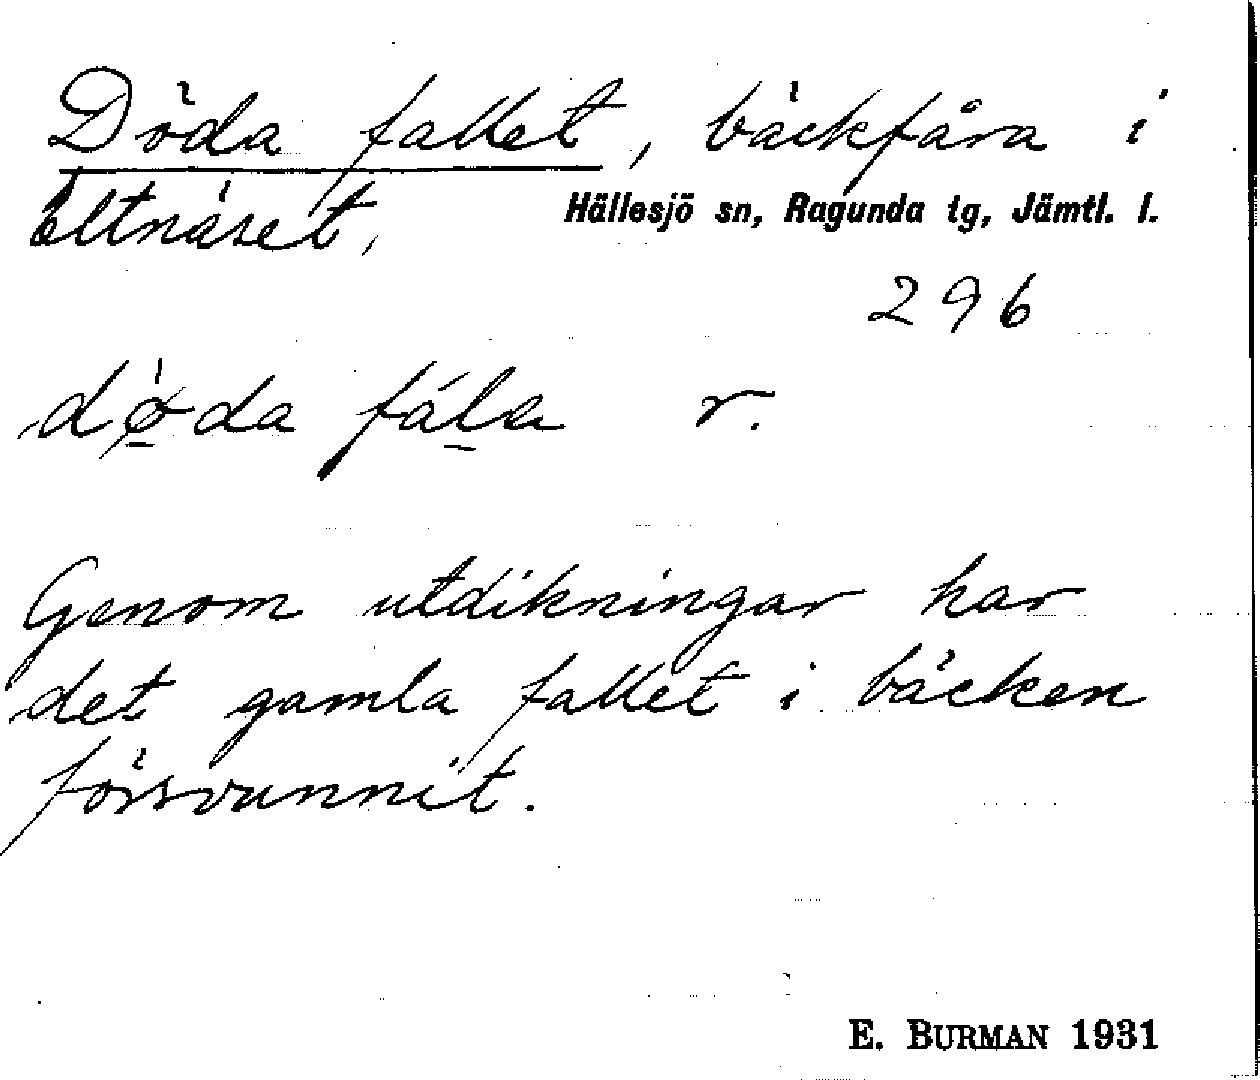 Döda fallet, bäckfåra i
Ältnäset,
Hällesjö sn, Ragunda tg, Jämtl. l.
296
dø̱da fáḻa r.
Genom utdikningar har
det gamla fallet i bäcken
försvunnit.
E. BURMAN 1931